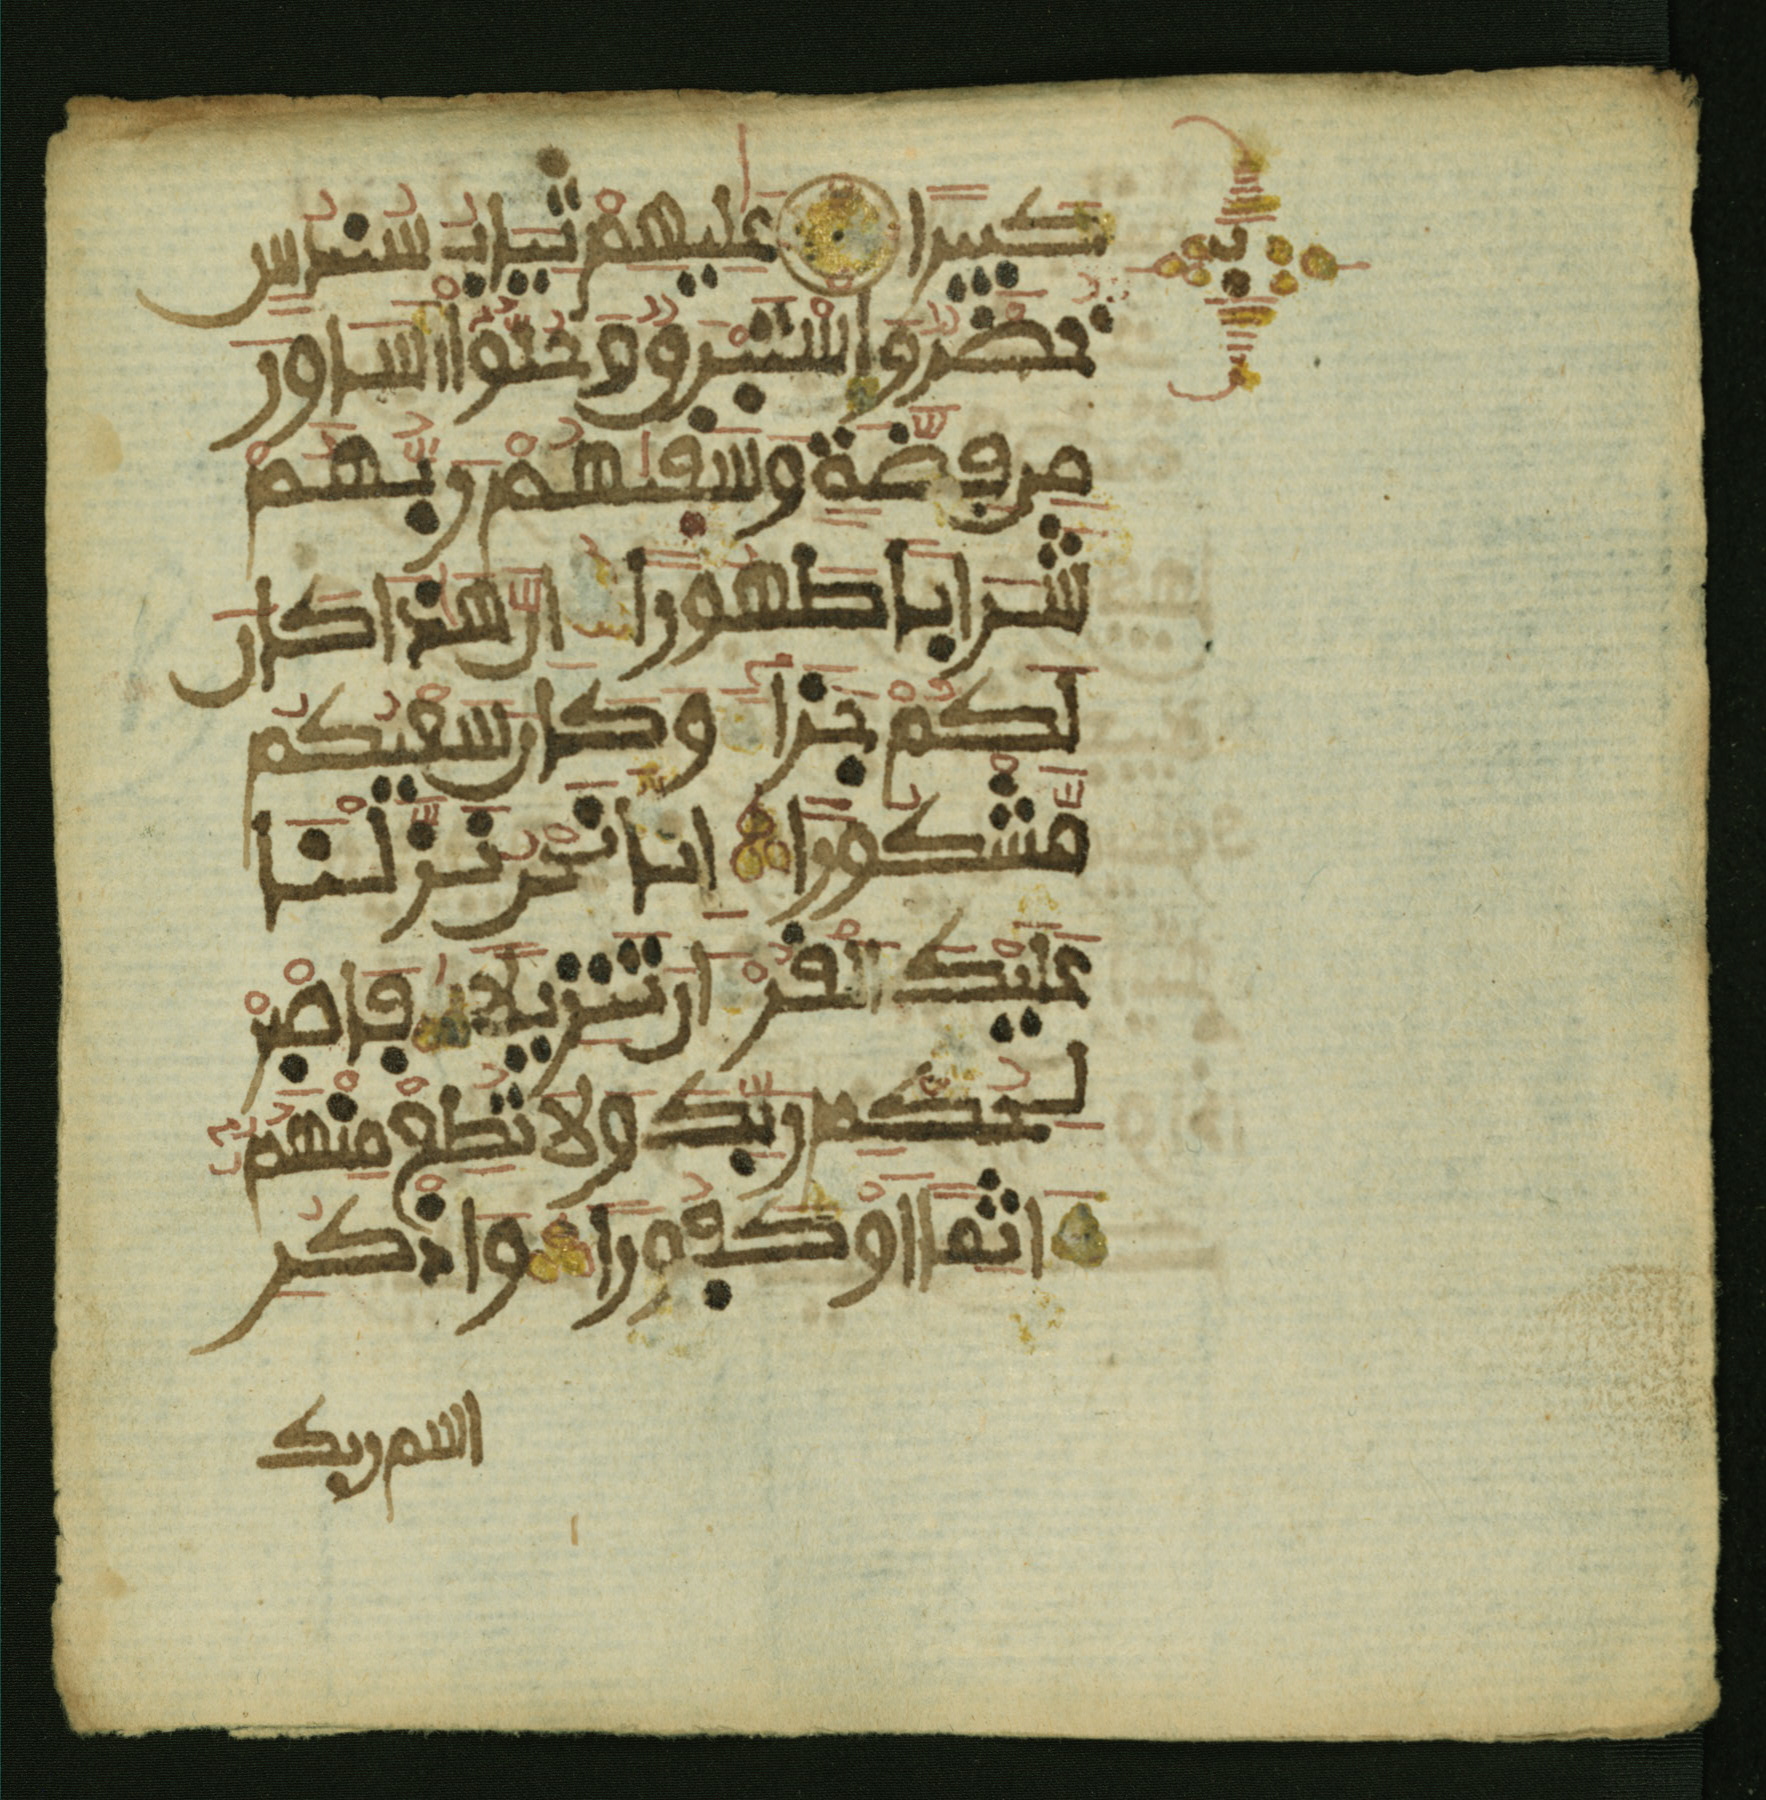 كبيرا عليهم ثياب سندس
خضر واستبرق وحلوا اساور
من فضة وسقيهم ربهم
شرابا طهورا ان هذا كان
لكم جزا وكان سعيكم
مشكورا انا نحن نزلنا
عليك القران تنزيلا فاصبر
لحكم ربك ولا تطع منهم
اثما او كفورا واذكر
اسم ربك